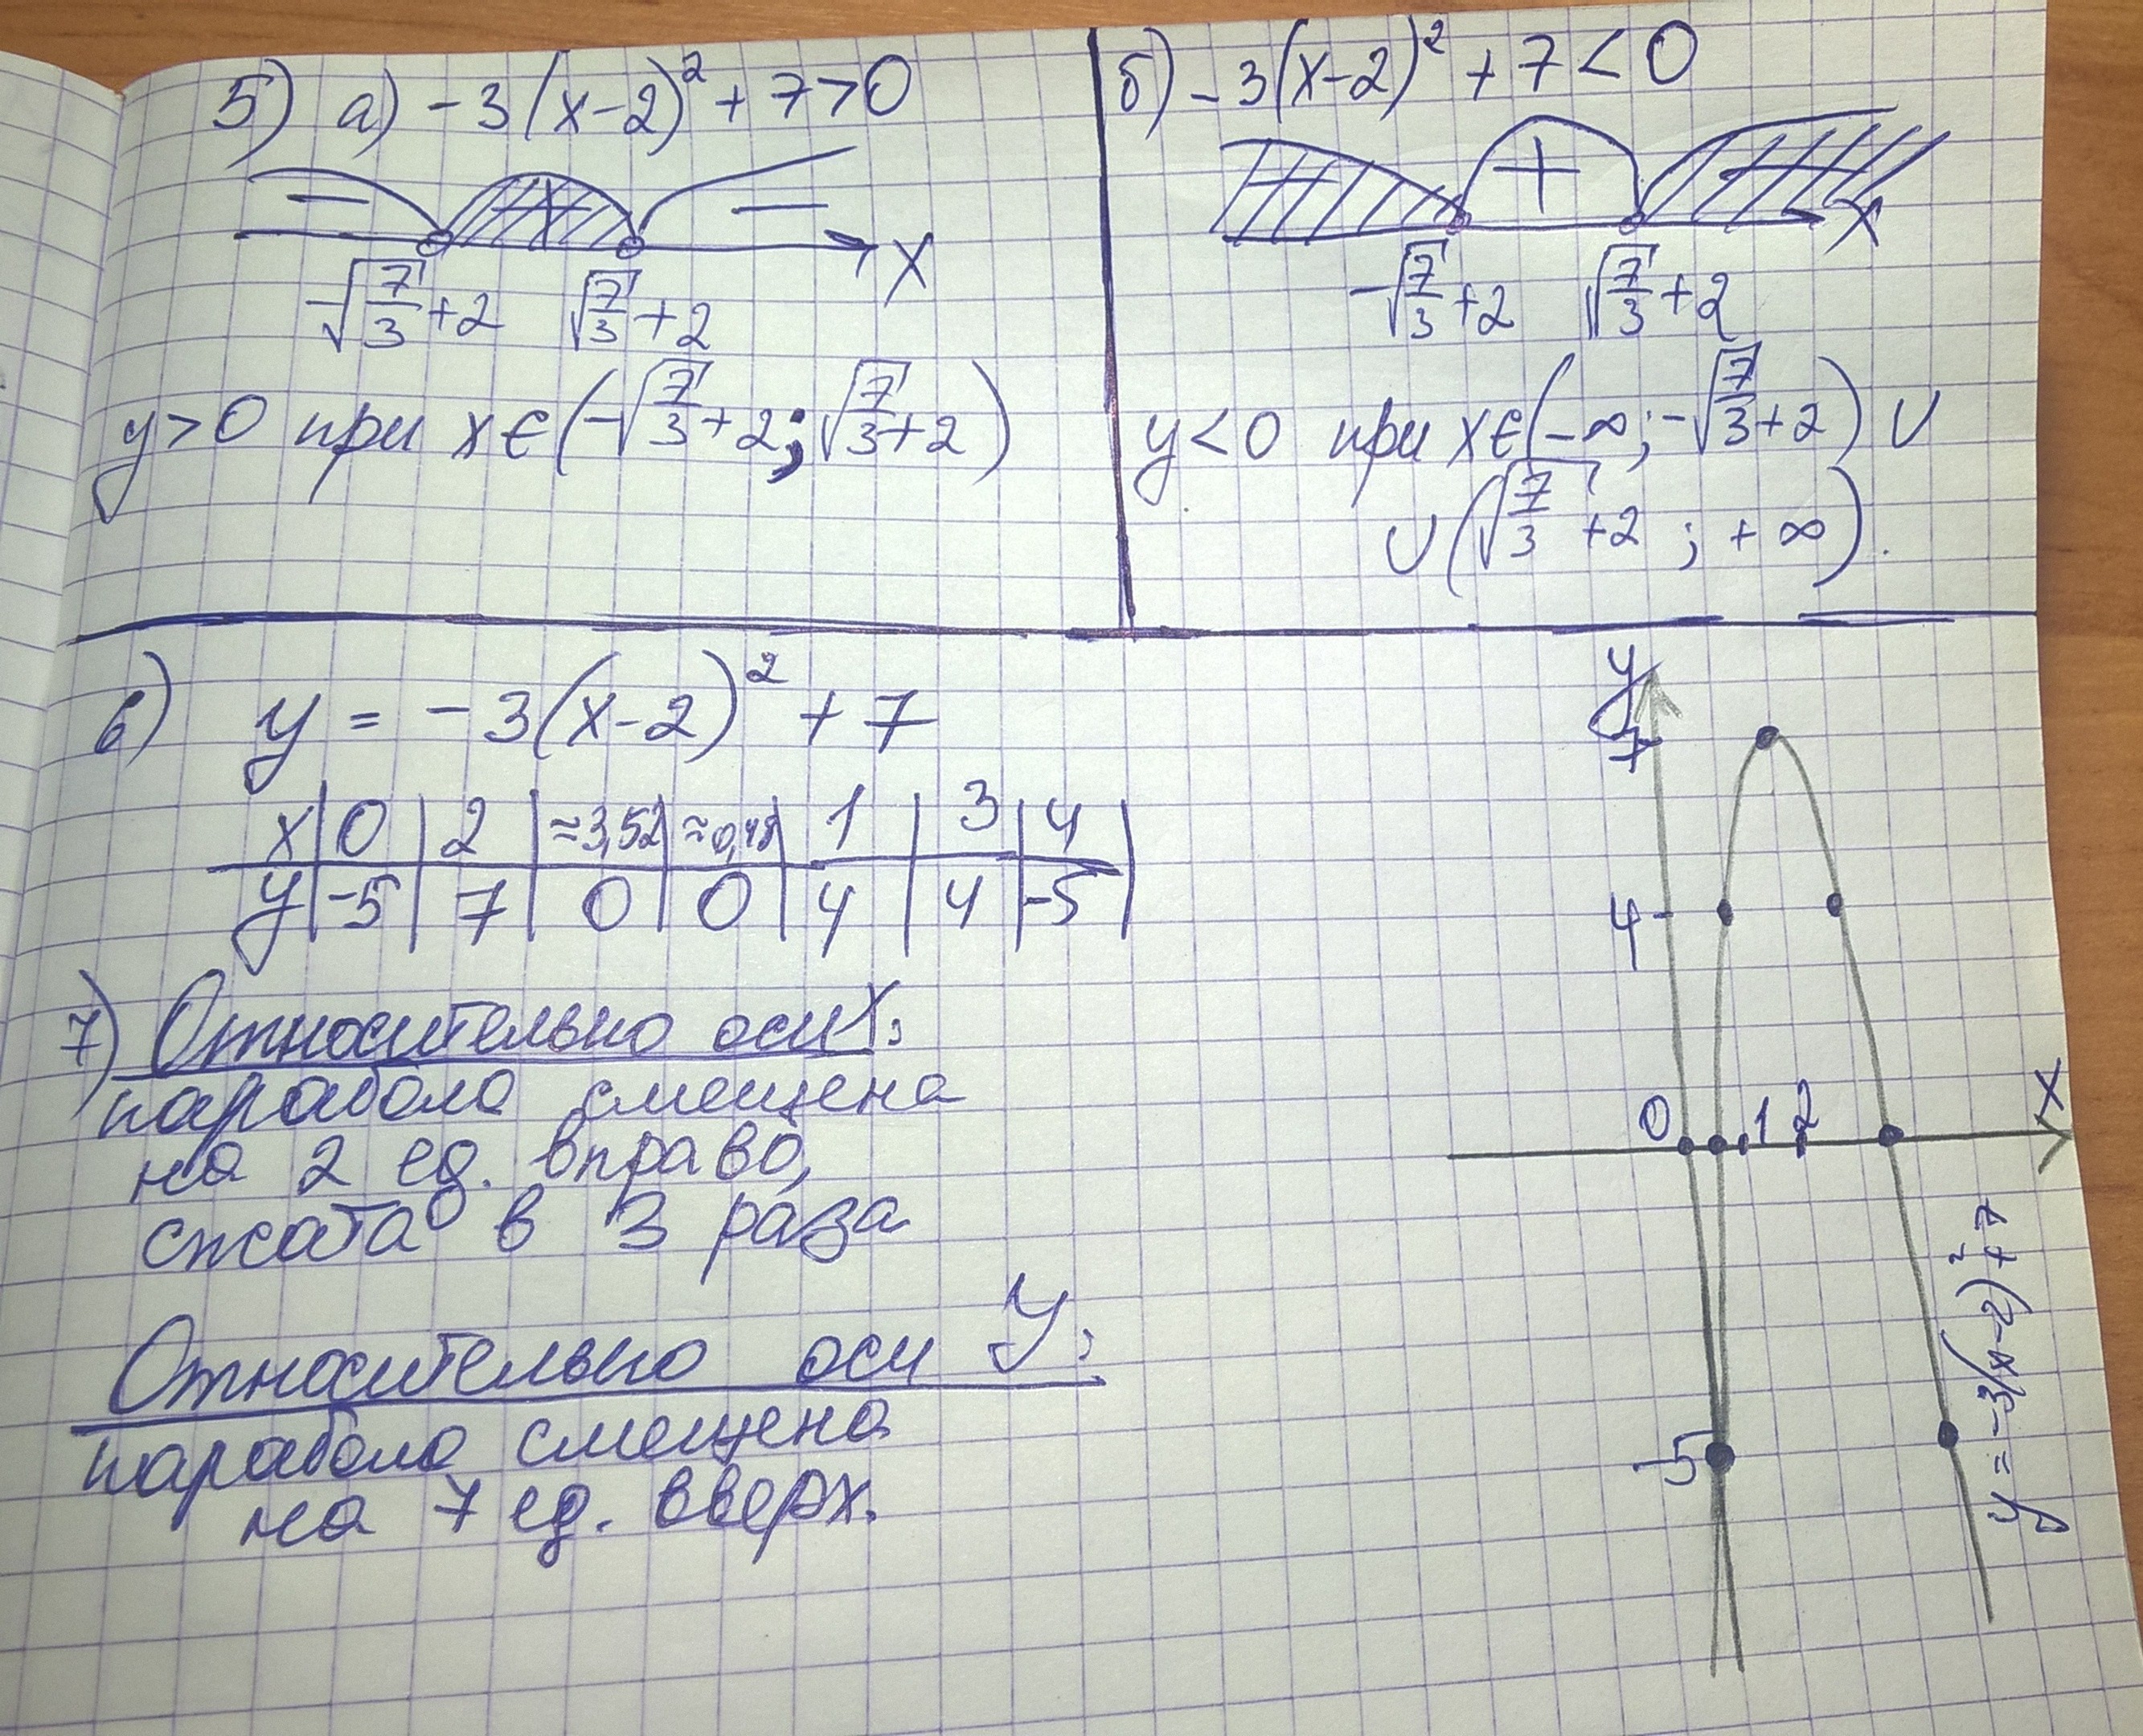 5) а) -3(x-2)² + 7 > 0
− + − x
-√(7/3)+2 √(7/3)+2
y>0 при x∈(-√(7/3)+2; √(7/3)+2)
б) -3(x-2)² + 7 < 0
− + − x
-√(7/3)+2 √(7/3)+2
y<0 при x∈(-∞; -√(7/3)+2) ∪
∪(√(7/3)+2; +∞).
6) y = -3(x-2)² + 7
x | 0 | 2 | ≈3,52 | ≈0,48 | 1 | 3 | 4 |
y | -5 | 7 | 0 | 0 | 4 | 4 | -5 |
7) Относительно оси X:
парабола смещена
на 2 ед. вправо,
сжата в 3 раза
Относительно оси У:
парабола смещена
на 7 ед. вверх.
y
7
4
0 1 2 x
-5
y = -3(x-2)²+7